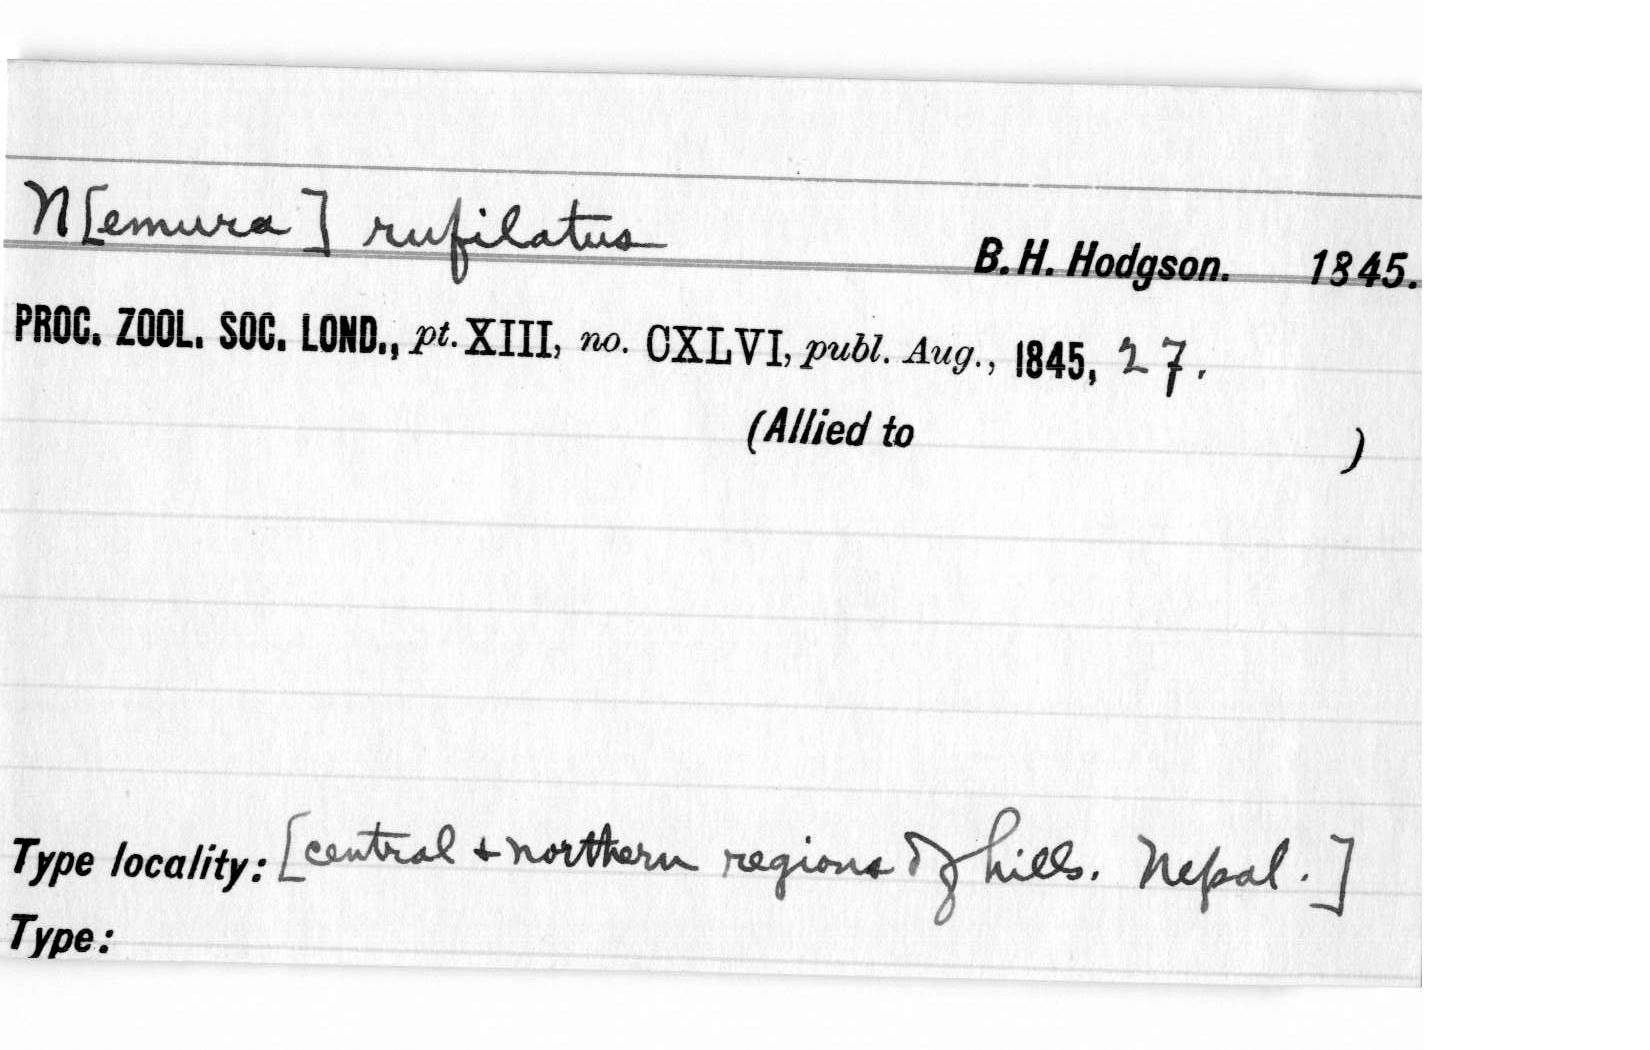 N[emura] rufilatus
B. H. Hodgson. 1845.
PROC. ZOOL. SOC. LOND., pt. XIII, no. CXLVI, publ. Aug., 1845, 27.
(Allied to )
Type locality: [central + northern regions of hills. Nepal.]
Type: